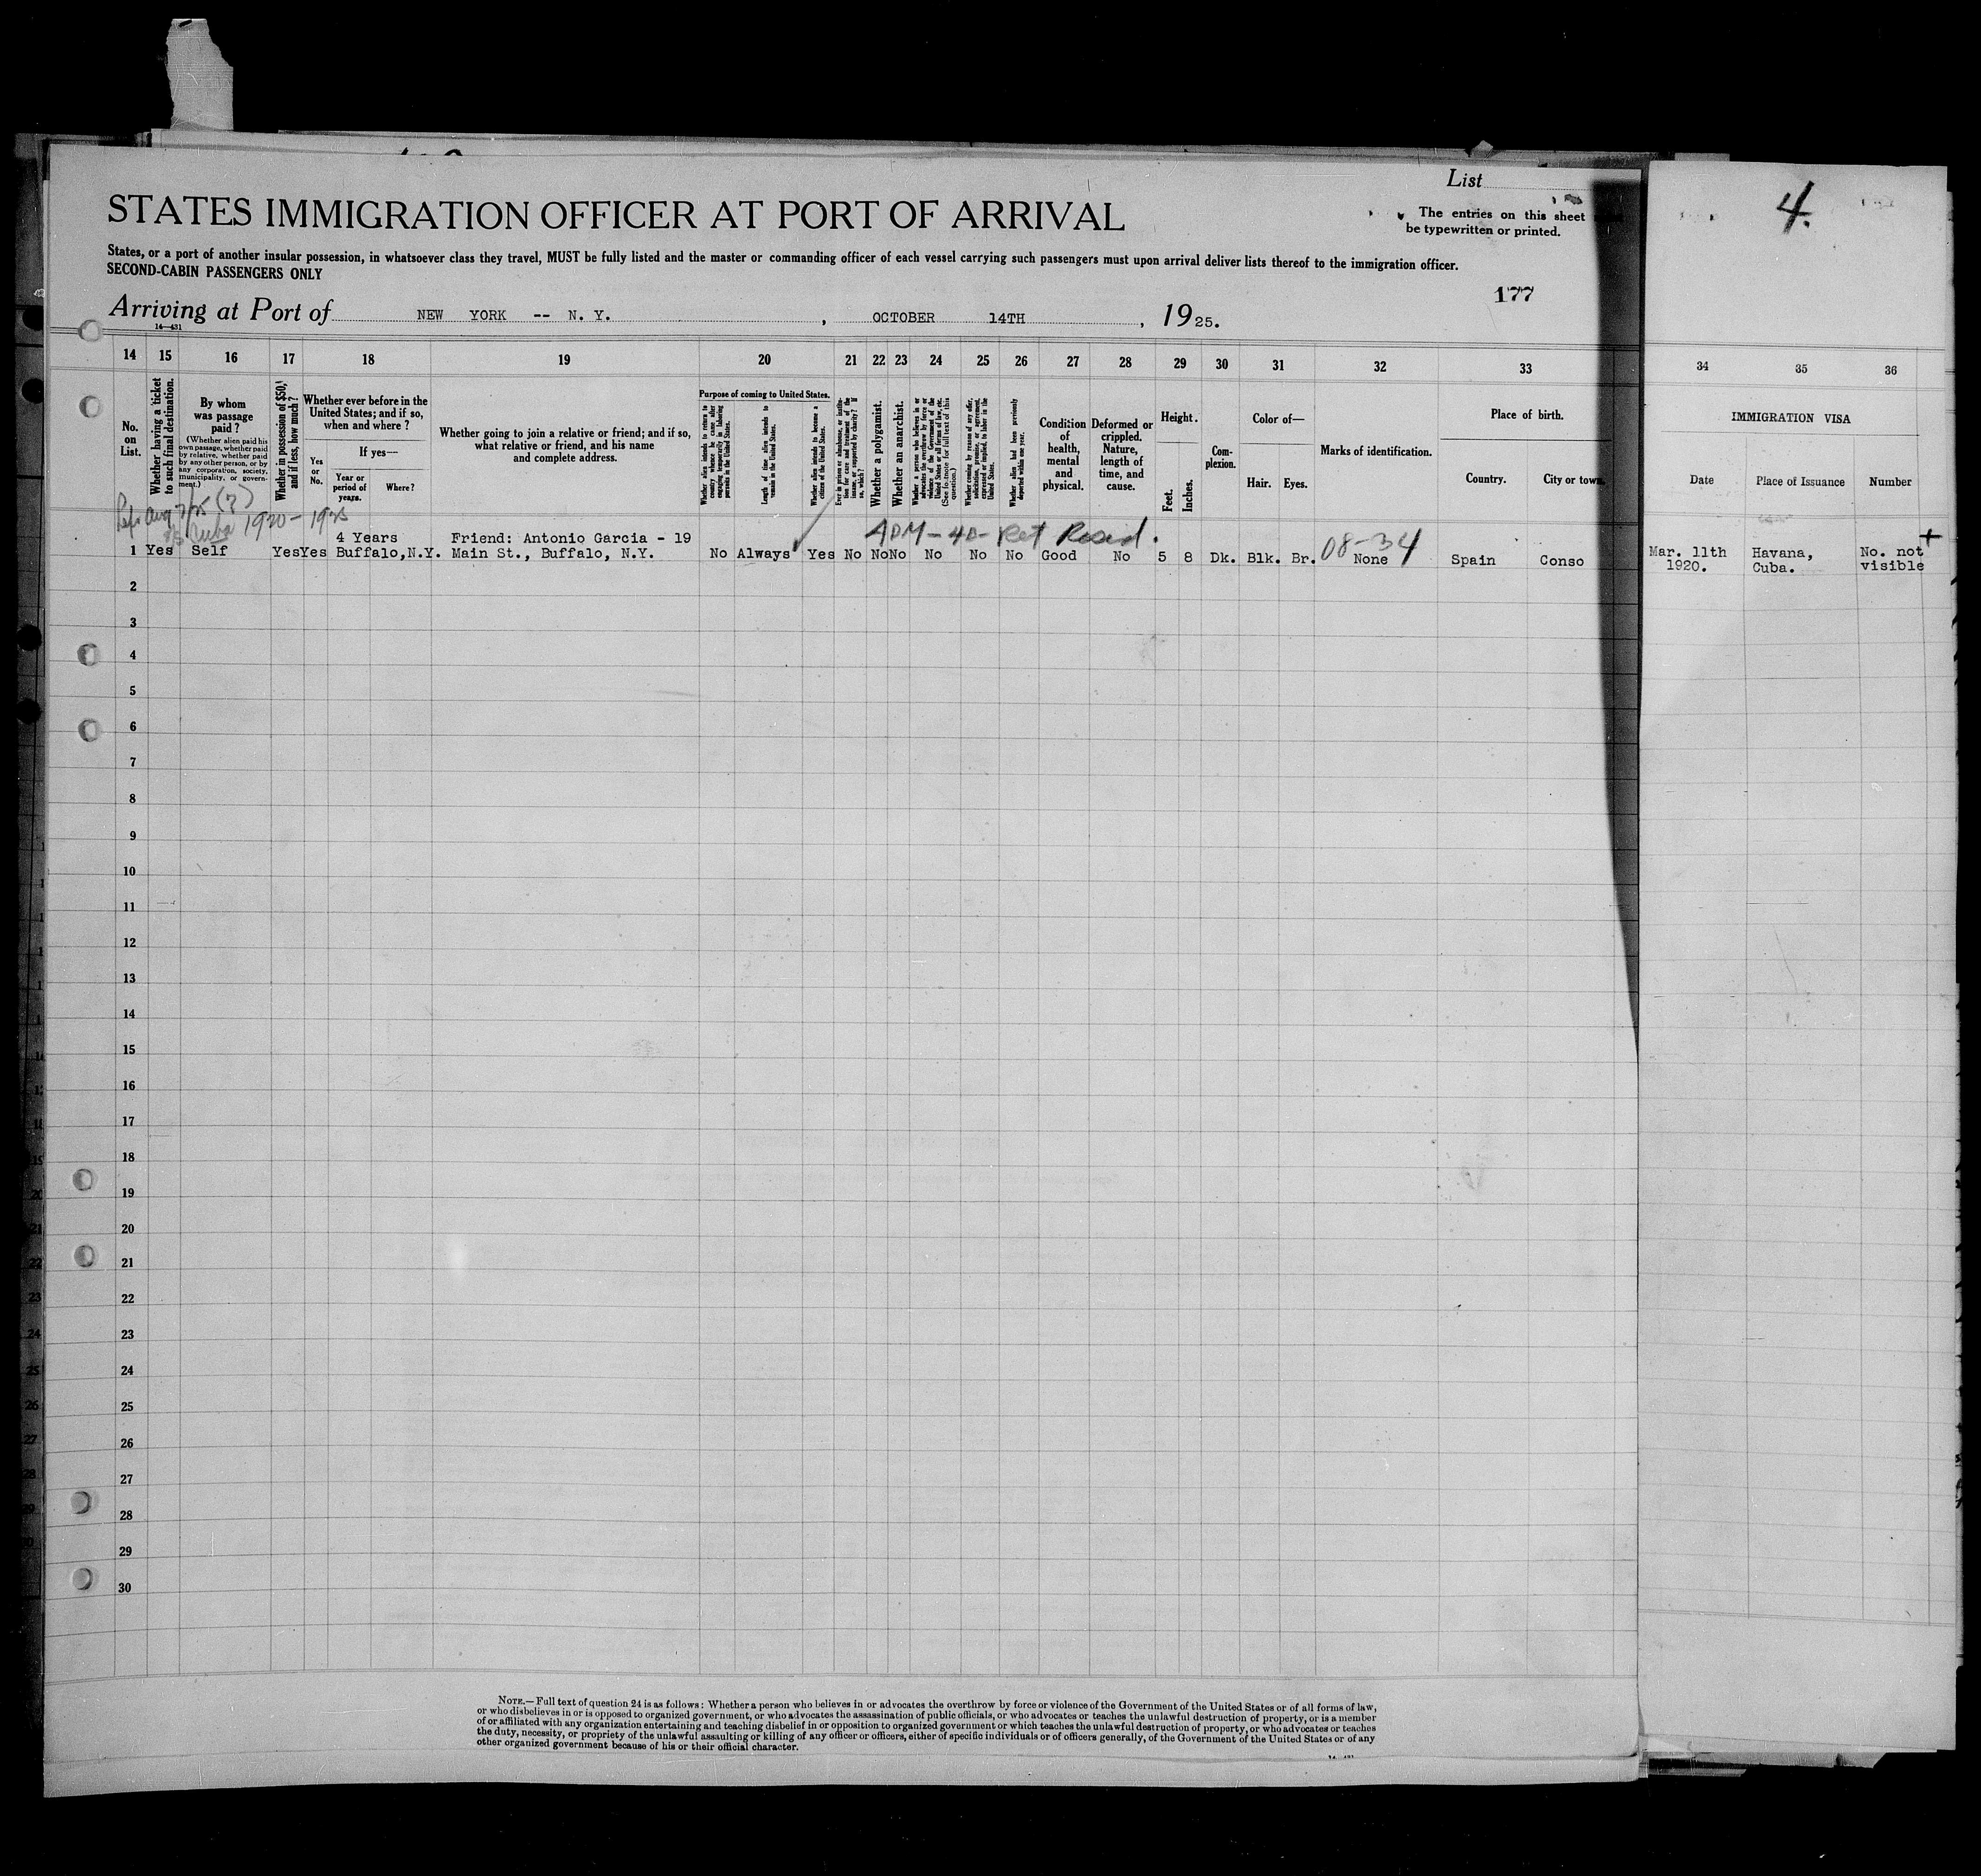 List
STATES IMMIGRATION OFFICER AT PORT OF ARRIVAL
4.
The entries on this sheet
be typewritten or printed.
States, or a port of another insular possession, in whatsoever class they travel, MUST be fully listed and the master or commanding officer of each vessel carrying such passengers must upon arrival deliver lists thereof to the immigration officer.
SECOND-CABIN PASSENGERS ONLY
177
Arriving at Port of NEW YORK -- N. Y. , OCTOBER 14TH , 1925.
14—431
14 15 16 17 18 19 20 21 22 23 24 25 26 27 28 29 30 31 32 33 34 35 36
No. on List.
Whether having a ticket to such final destination.
By whom was passage paid?
(Whether alien paid his own passage, whether paid by relative, whether paid by any other person, or by any corporation, society, municipality, or government.)
Whether in possession of $50, and if less, how much?
Whether ever before in the United States; and if so, when and where?
Yes or No.
If yes—
Year or period of years.
Where?
Whether going to join a relative or friend; and if so, what relative or friend, and his name and complete address.
Purpose of coming to United States.
Whether alien intends to return to country whence he came after engaging temporarily in laboring pursuits in the United States.
Length of time alien intends to remain in the United States.
Whether alien intends to become a citizen of the United States.
Ever in prison or almshouse, or institution for care and treatment of the insane, or supported by charity? If so, which?
Whether a polygamist.
Whether an anarchist.
Whether a person who believes in or advocates the overthrow by force or violence of the Government of the United States or all forms of law, etc. (See footnote for full text of this question.)
Whether coming by reason of any offer, solicitation, promise, or agreement, expressed or implied, to labor in the United States.
Whether alien had been previously deported within one year.
Condition of health, mental and physical.
Deformed or crippled. Nature, length of time, and cause.
Height.
Feet. Inches.
Complexion.
Color of—
Hair. Eyes.
Marks of identification.
Place of birth.
Country. City or town.
IMMIGRATION VISA
Date Place of Issuance Number
Cuba 1920-1925
ADM-4D-Ret Resid.
08-34
+
1 Yes Self Yes Yes 4 Years Buffalo, N.Y. Friend: Antonio Garcia - 19 Main St., Buffalo, N.Y. No Always Yes No No No No No No Good No 5 8 Dk. Blk. Br. None Spain Conso Mar. 11th 1920. Havana, Cuba. No. not visible
2
3
4
5
6
7
8
9
10
11
12
13
14
15
16
17
18
19
20
21
22
23
24
25
26
27
28
29
30
NOTE.—Full text of question 24 is as follows: Whether a person who believes in or advocates the overthrow by force or violence of the Government of the United States or of all forms of law,
or who disbelieves in or is opposed to organized government, or who advocates the assassination of public officials, or who advocates or teaches the unlawful destruction of property, or is a member
of or affiliated with any organization entertaining and teaching disbelief in or opposition to organized government or which teaches the unlawful destruction of property, or who advocates or teaches
the duty, necessity, or propriety of the unlawful assaulting or killing of any officer or officers, either of specific individuals or of officers generally, of the Government of the United States or of any
other organized government because of his or their official character.